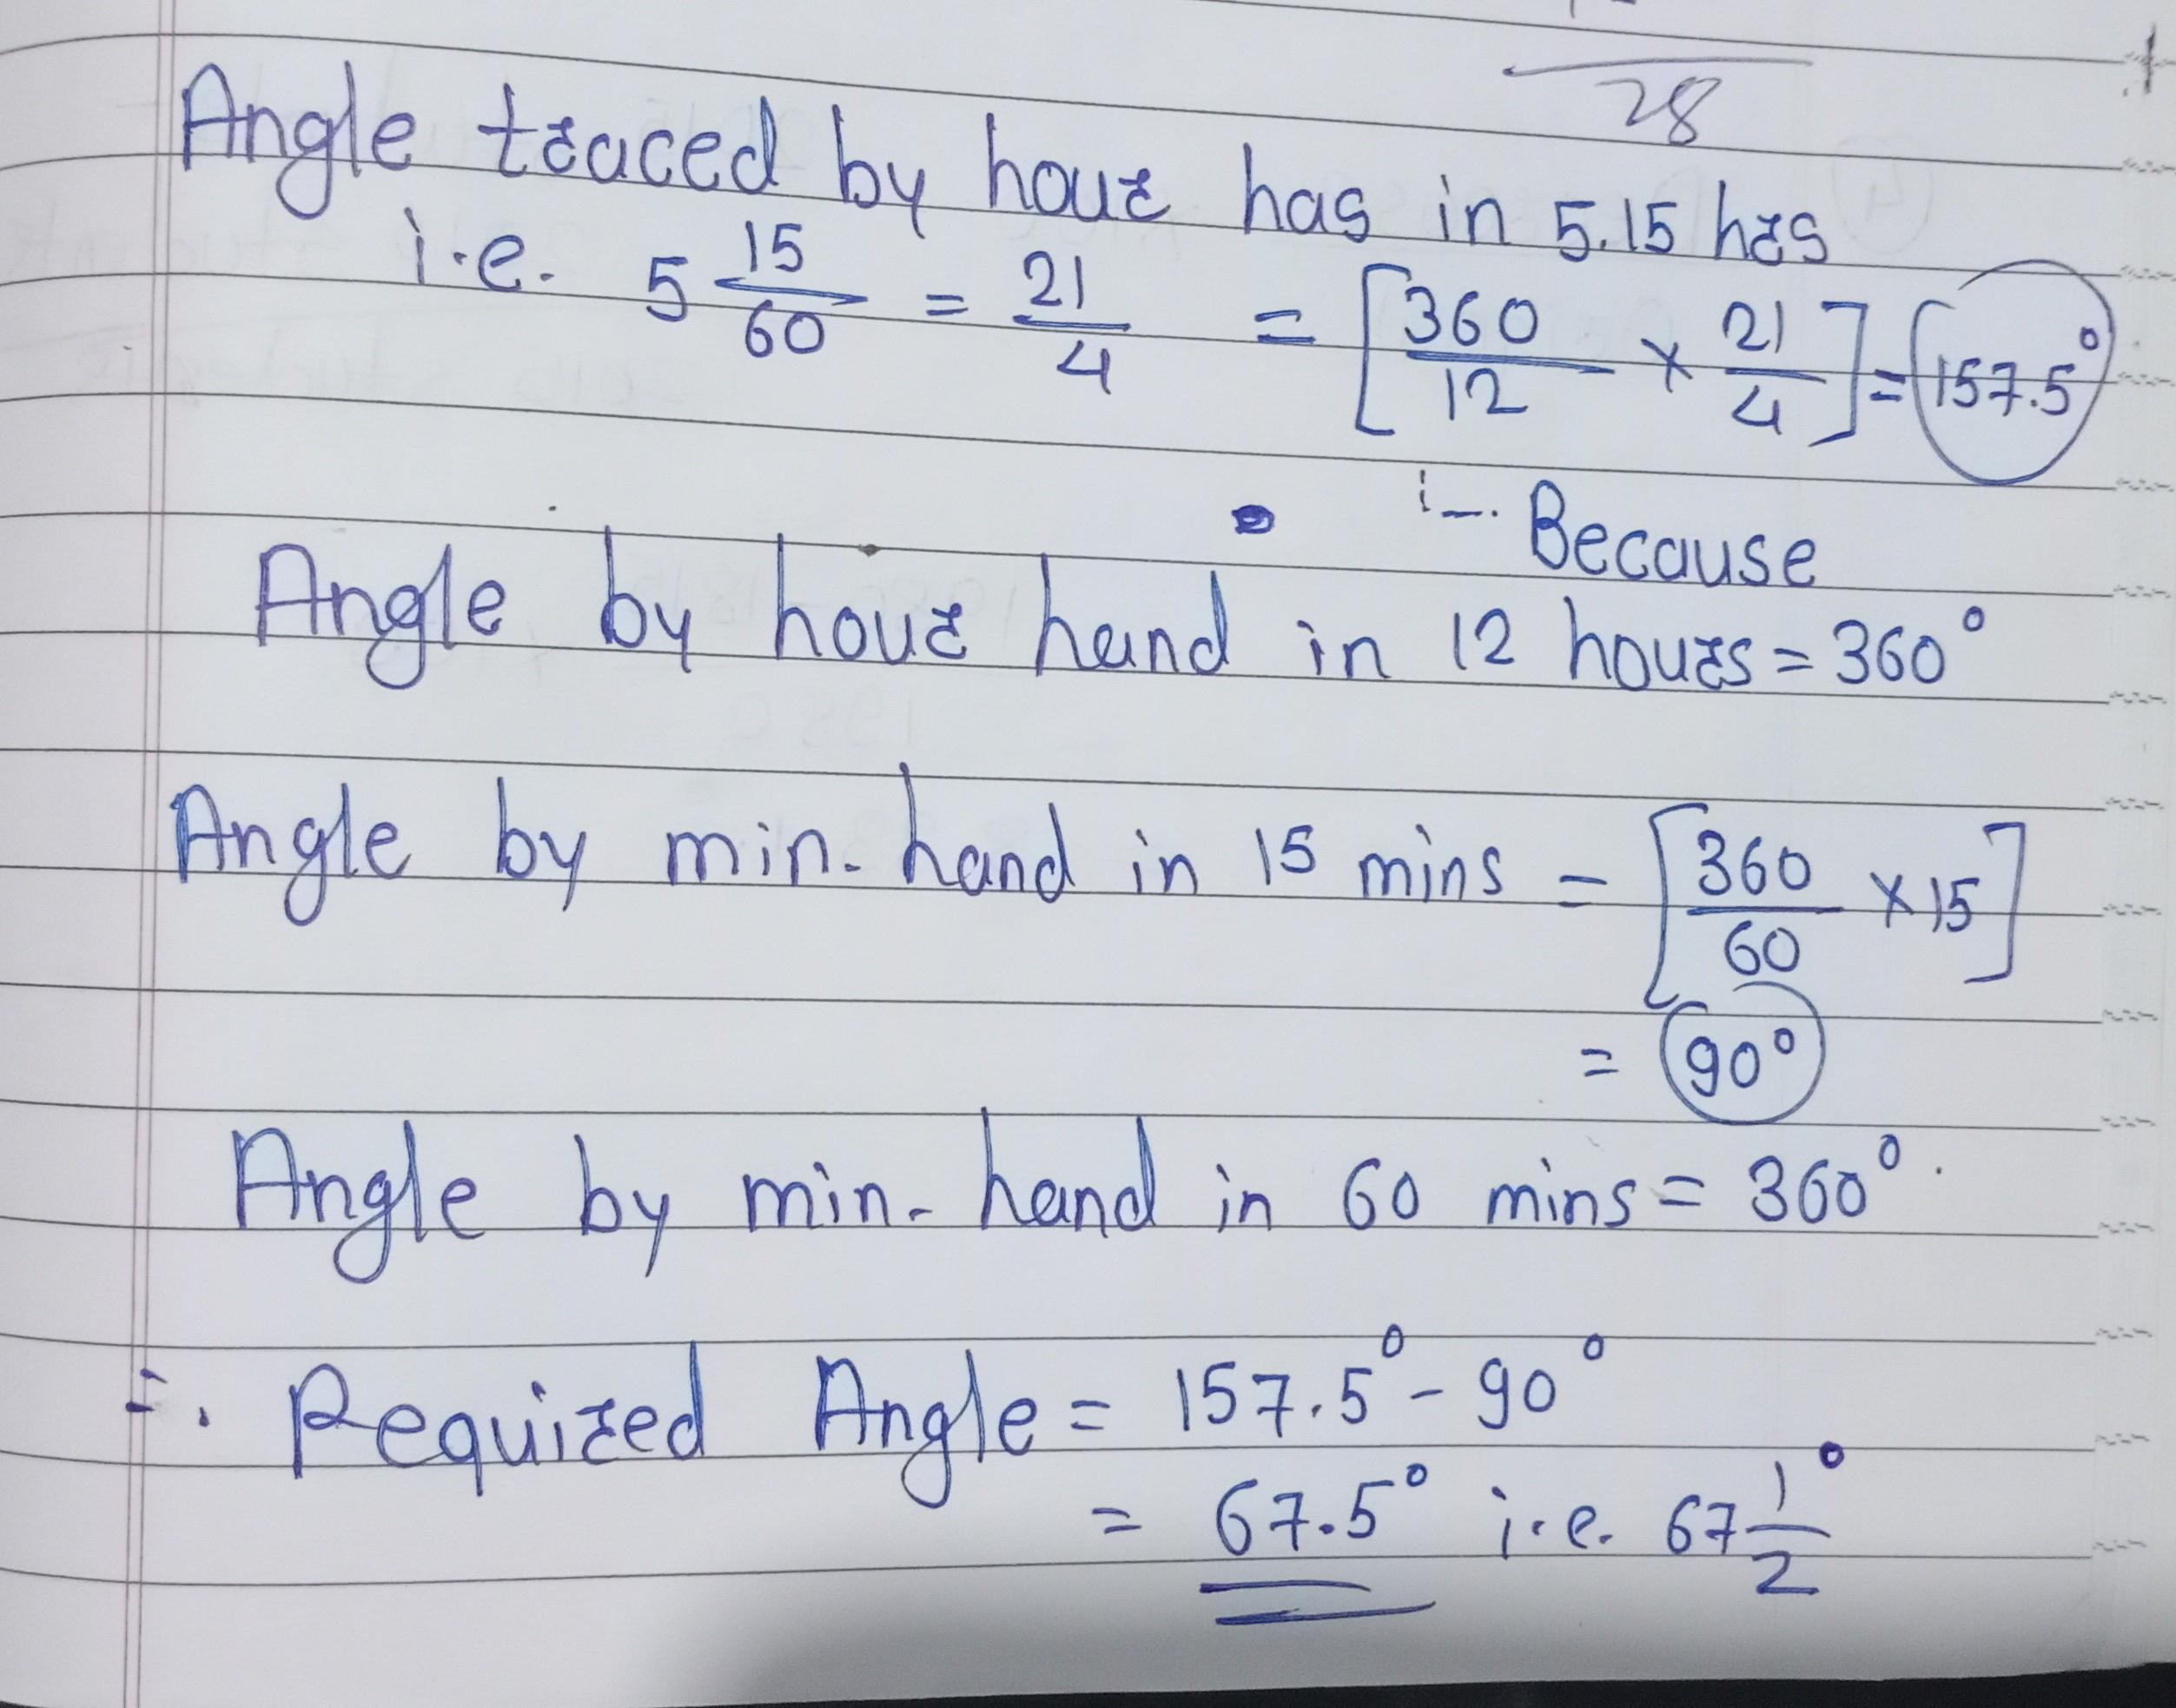 28
Angle traced by hour has in 5.15 hrs
i.e. 5 15/60 = 21/4 = [360/12 × 21/4] = 157.5°
Because
Angle by hour hand in 12 hours = 360°
Angle by min. hand in 15 mins = [360/60 × 15]
= 90°
Angle by min. hand in 60 mins = 360°.
∴ Required Angle = 157.5° - 90°
= 67.5° i.e. 67 1/2°